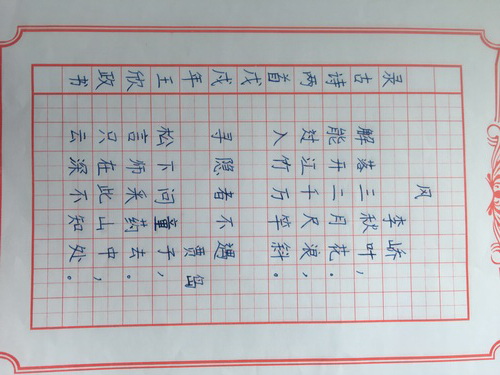 风
李峤
解落三秋叶,
能开二月花.
过江千尺浪,
入竹万竿斜。
寻隐者不遇
贾岛
松下问童子,
言师采药去。
只在此山中,
云深不知处。
录古诗两首戊戌年王欣政书